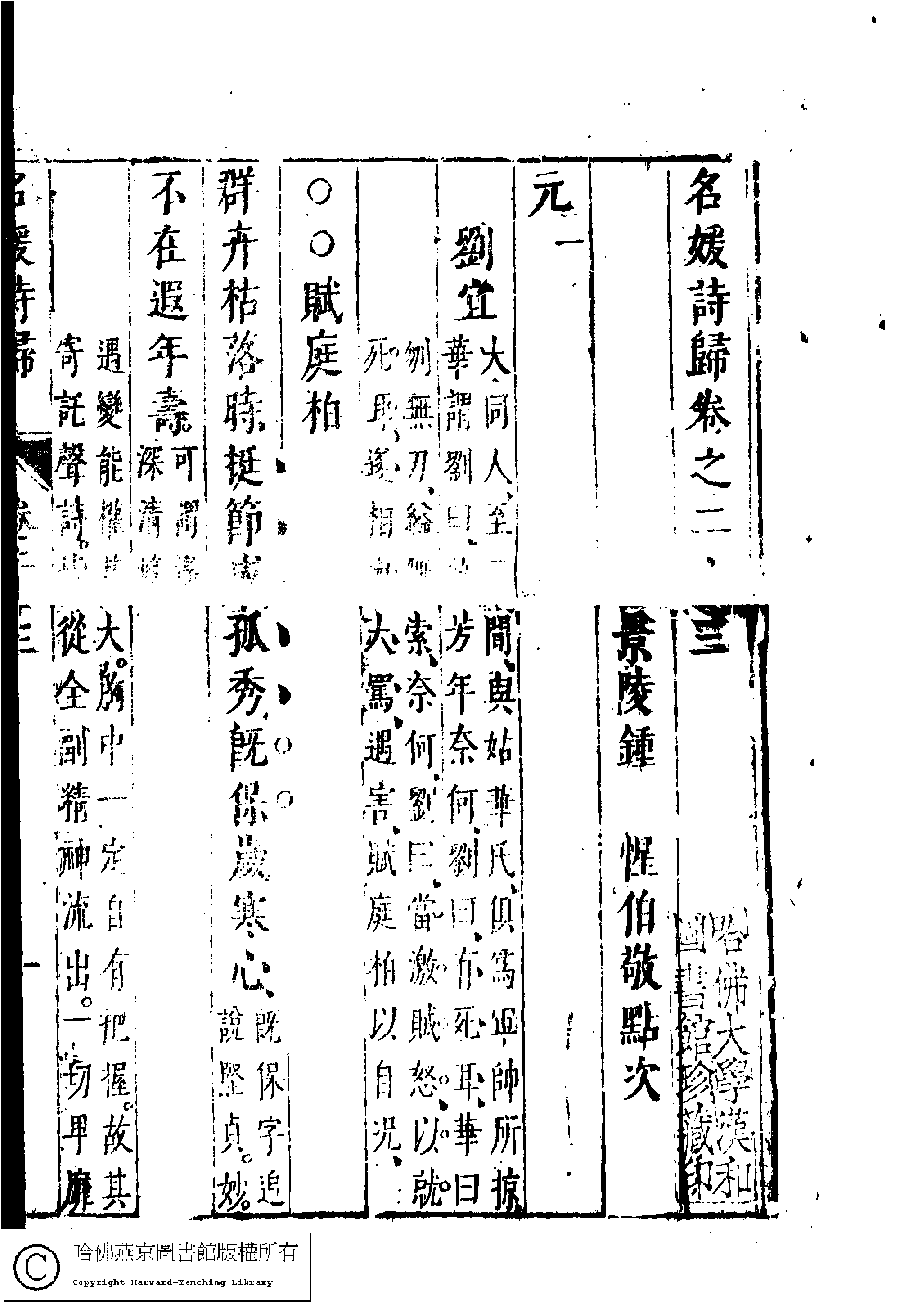 名媛詩歸卷之二三
景陵鍾 惺伯敬點次
元一
劉宜
大同人至
間與姑華氏俱爲軍帥所掠
華謂劉曰
芳年奈何劉曰有死耳華曰
刎無刀縊無
索奈何劉曰當激賊怒以就
死耳遂相
大罵遇害賦庭柏以自況
○○賦庭柏
群卉枯落時挺節
孤秀旣保歲寒心
旣保字追
說堅貞妙
不在遐年壽
可謂
深清
遇變能權
大胸中一定自有把握故其
寄託聲詩
從全副精神流出一切卑靡
名媛詩歸
卷
三
一
哈佛大學漢和
圖書館珍藏印
哈佛燕京圖書館版權所有
Copyright Harvard-Yenching Library